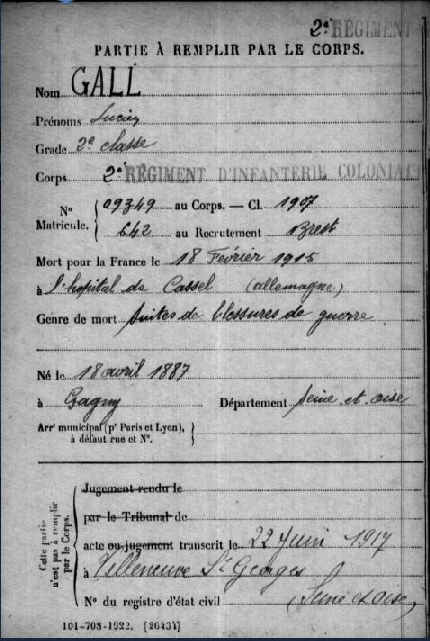 2e RÉGIMENT
PARTIE À REMPLIR PAR LE CORPS.
Nom GALL
Prénoms Lucien
Grade 2e classe
Corps 2e RÉGIMENT D'INFANTERIE COLONIAL
N° Matricule. { 09349 au Corps. — Cl. 1907
642 au Recrutement Brest
Mort pour la France le 18 Février 1915
à l'hôpital de Cassel (Allemagne)
Genre de mort suites de blessures de guerre
Né le 18 avril 1887
à Gagny Département Seine et oise
Arrt municipal (pr Paris et Lyon), à défaut rue et N°. }
Cette partie n'est pas à remplir par le Corps.
Jugement rendu le
par le Tribunal de
acte ou jugement transcrit le 22 Juin 1917
à Villeneuve St Georges
N° du registre d'état civil (Seine et oise)
101-708-1922. [26434]